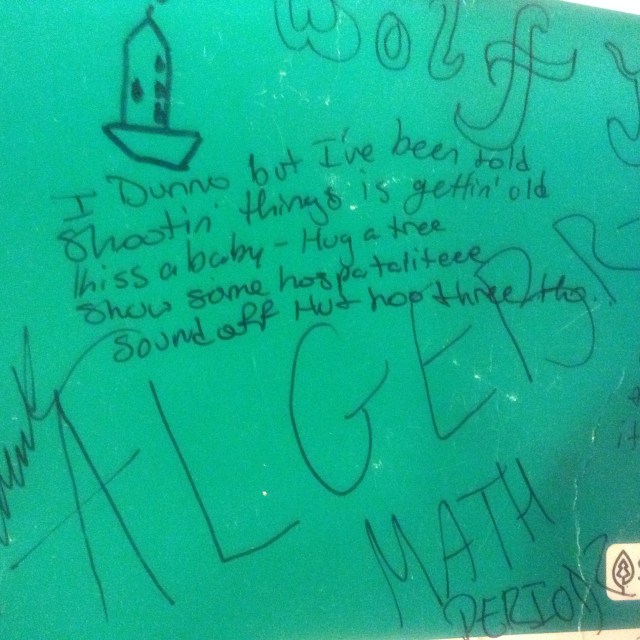 Wolfy
I Dunno but I've been told
Shootin' things is gettin' old
kiss a baby - Hug a tree
Show some hospataliteee
Sound off Hut hop three
ALGEBR
MATH
PERIOD
it